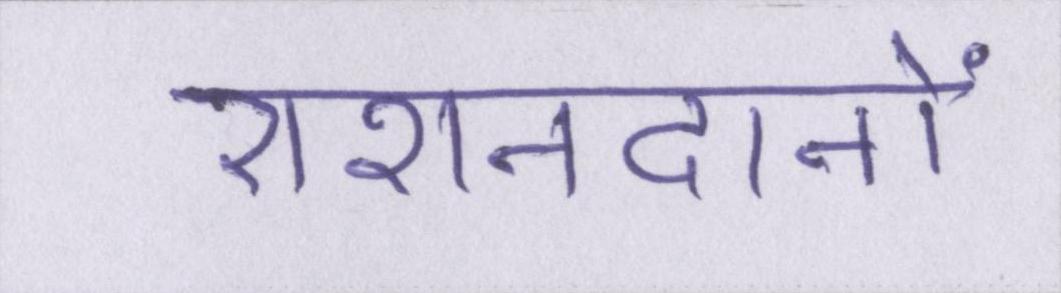 राशनदानों